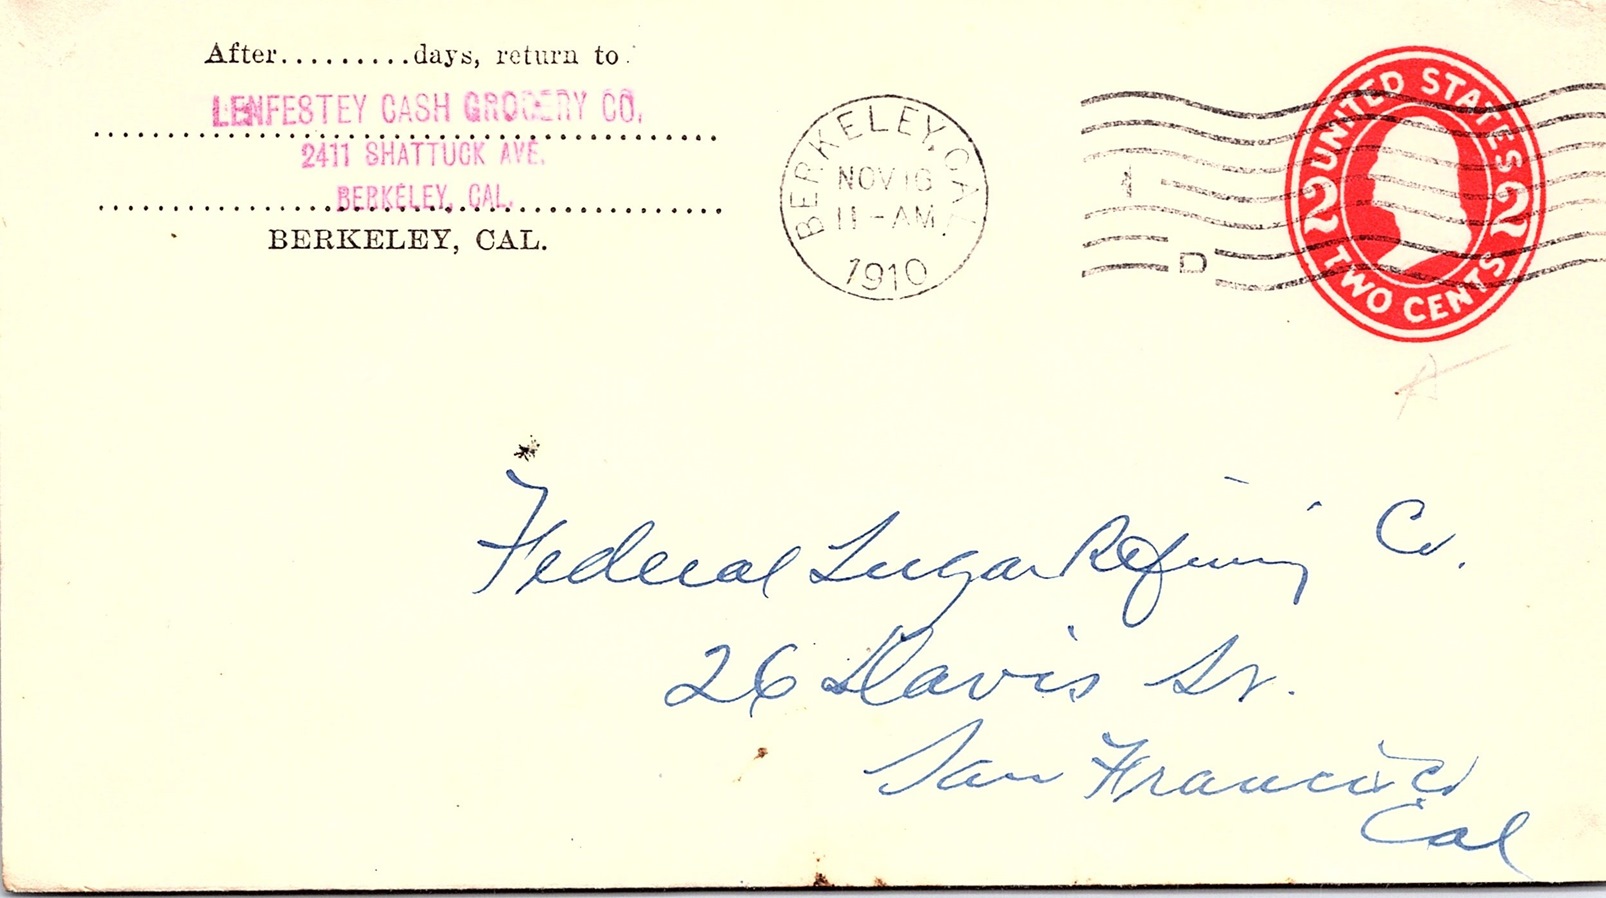 After.........days, return to
LENFESTEY CASH GROCERY CO.
2411 SHATTUCK AVE.
BERKELEY, CAL.
BERKELEY, CAL.
BERKELEY, CAL.
NOV 16
11-AM
1910
1
D
UNITED STATES
2 2
TWO CENTS
Federal Sugar Refining Co.
26 Davis St.
San Francisco
Cal